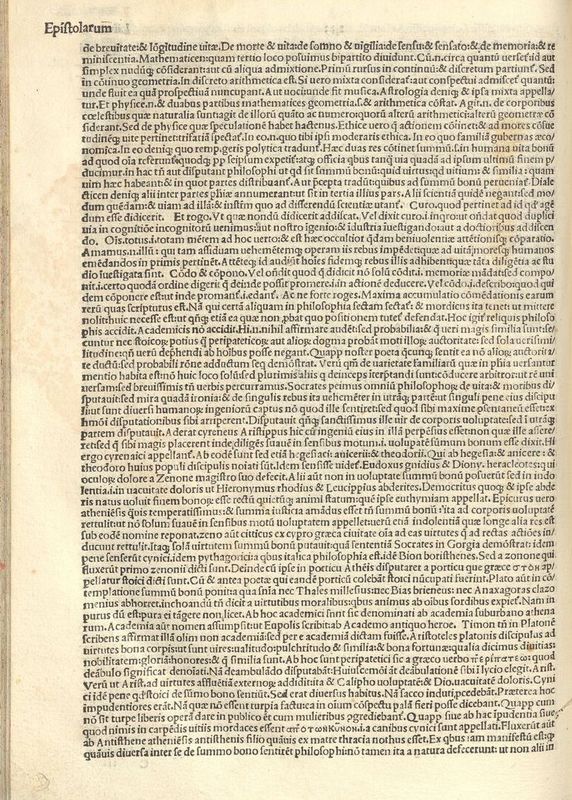 Epistolarum
de breuitate:& lõgitudine uitæ.De morte & uita:de somno & uigilia:de sensu:& sensato:&.de memoria:& re
miniscentia.Mathematicen:quam tertio loco posuimus bipartito diuidunt.Cũ.n.circa quantũ uersetur:id aut
simplex nudũq; cõsiderant:aut cũ aliqua admixtione.Primũ rursus in continuũ:& discretum partiunt.Sed
in cõtinuo geometria.In discreto arithmetica est.Si uero mixta considerat:aut conspectui admiscet quantũ:
unde fluit ea quã prospectiuã nuncupant.Aut uoci:unde fit musica.Astrologia deniq; & ipsa mixta appella/
tur.Et physice.n.& duabus partibus mathematices geometria.s.& arithmetica cõstat.Agit.n. de corporibus
cœlestibus quæ naturalia sunt:agit de illorũ quãto ac numero:quorũ alterũ arithmetica:alterũ geometra cõ
siderant.Sed de physicæ quæ speculatiõe habet hactenus.Ethice uero q̃ actionem cõtinet:& ad mores cõsue
tudinẽq; uitæ pertinet:trifariã spectat.In eo.n.quo tibi ipsi moderaris ethica.In eo quo familiã gubernas œco
nomica.In eo deniq; quo remp.geris polytica traduntur.Hæc duas res cõtinet summũ.s.in humana uita bonũ
ad quod oĩa referunt:quodq; pp seipsum expetit:atq; officia qbus tanq̃ uia quadã ad ipsum ultimũ finem p/
ducimur.in hac tñ aut disputant philosophi ut qd sit summũ bonũ:quid uirtus:qd uitium:& similia:quam
uim hæc habeant:& in quot partes distribuant.Aut p̃cepta tradũt:quibus ad summũ bonũ peruenias.Diale
cticen deniq; alii inter partes phiæ annumerant:ut sit in tertia illius pars.Alii scientiã quidẽ negant:sed mo/
dum quẽdam:& uiam ad illã:& instrm̃ quo ad differendũ scientiæ utant. Curo.quod pertinet ad id qd agẽ
dum esse didicerit. Et rogo.Vt quæ nondũ didicerit addiscat.Vel dixit curo.i.inq̃ro:ut oñdat quod duplici
uia in cognitiõe incognitorũ uenimus:aut nostro ĩgenio:& ĩdustria ĩuestigando:aut a doctioribus addiscen
do. Oĩs.totus.i.totam mẽtem ad hoc uerto:& est hæc occulti:ot qdam beniuolentiæ attẽtionisq; cõparatio.
Amamus.n.illũ:& qui tam assiduam uehemẽtemq; operam iis rebus impẽdit:quæ ad uitã:moresq; humanos
emẽdandos in primis pertinẽt.Attẽteq; id audĩt:& hoĩes fidemq; rebus illis adhibent:quæ tãta diligẽtia ac stu
dio ĩuestigata sunt. Cõdo & cõpono.Vel oñdit quo qd didicit nõ solũ cõdit.i. memoriæ mãdat:sed compo/
nit.i.certo quodã ordine digerit q̃ deinde possit promere.i.in actionẽ deducere.Vel:cõdo.i.describo:quod qui
dem cõponere est:ut inde promant.i.edant. Ac ne forte roges.Maxima accumulatio cõmẽdationis earum
rerũ quas scripturus est.Nã qui certã aliquam in philosophia sectam sectat & mordicus ita tenet:ut mittere
nolit:huic necesse est:ut qñq; etiã ea quæ non pbat quo positionem tutet defendat.Hoc igit reliquis philoso
phis accidit.Academicis nõ accidit.Hi.n.nihil affirmare audẽt:sed probabilia:& q̃ ueri magis similia sunt:se/
cuntur nec stoicor potius q̃ peripateticor aut alior dogma probãt moti illor auctoritate:sed sola uerisimi/
litudine:qñ uerũ dephendi ab hoĩbus posse negant.Quapp noster poeta q̃cunq; sentit ea nõ alior auctorita/
te ductũ:sed probabili rõne adductum seq; demõstrat. Verũ qm̃ de uarietate familiarũ quæ in phĩa uersantur
mentio habita est:nõ huic loco solũ:sed plurimis aliis q̃ deinceps iterp̃tandi sunt:cõducere arbitror:ut rẽ uni
uersam:sed breuissimis tñ uerbis percurramus.Socrates primus omniũ philosophor de uita:& moribus di/
sputauit:sed mira quadã ironia:& de singulis rebus ita uehemẽter in utrãq; partẽ:ut singuli pene eius discipu
li:ut sunt diuersi humanor ingeniorũ captus nõ quod ille sentiret:sed quod sibi maxime p̃sentaneũ esset:ex
hmõi disputationibus sibi arriperent.Disputauit qñq; sanctissimus ille uir de corporis uoluptate:sed ĩ utrãq;
partem disputauit.Aderat cyreneus Aristippus:hic cũ ingeniũ eius in illã perpẽsius esset:non quæ ille assere/
ret:sed q̃ sibi magis placerent inde diligẽs suauẽ in sensibus motum.i. uoluptatẽ sũmum bonum esse dixit.Hi
ergo cyrenaici appellant.Ab eodẽ sunt:sed etiã hegesiaci:anicerii:& theodorii.Qui ab hegesia:& anicere:&
theodoro huius populi discipulis noĩati sũt.Idem sensisse uidet.Eudoxus gnidius & Diony.heracleotes:qui
oculor dolore a Zenone magistro suo defecit.Alii aũt non in uoluptate summũ bonũ posuerũt sed in indo
lentia.i.in uacuitate doloris:ut Hieronymus rhodius & Leucippus abderites.Democritus quoq; & ipse abde
rites natus uoluit finem bonor esse recti:quietiq; animi statum:quẽ ipse euthymiam appellat.Epicurus uero
atheniẽsis quis temperatissimus:& summa iusticia amãdus esset tñ summũ bonũ:uita ad corporis uoluptatẽ
rettulit:ut nõ solum suauẽ in sensibus motũ uoluptatem appellet:uerũ etiã indolentiã quæ longe alia res est
sub eodẽ nomine reponat.zeno aũt citticus ex cypro græca ciuitate oĩa ad eas uirtutes q̃ ad rectas actiõẽs in/
ducunt retulit.Itaq; solã uirtutem summũ bonũ putauit:quã sententiã Socrates in Gorgia demõstrat:idem
pene senserũt cynici:idem pythagorici:a qbus italica philosophia est.idẽ Bion boristhenes.Sed a zenone qui
fluxerũt primo zenonii dicti sunt.Deinde cũ ipse in porticu Athẽis disputaret a porticu quæ græce στοὰ ap/
pellatur stoici dicti sunt.Cũ & antea poetæ qui eandẽ porticũ colebãt stoici nũcupati fuerint.Plato aũt in cõ/
templatione summũ bonũ ponit:a qua snĩa nec Thales millesius:nec Bias brieneus:nec Anaxagoras clazo
menius abhorret.inchoandũ tñ dicit a uirtutibus moralibus:qbus animus ab oĩbus sordibus expiet.Nam in
purus dũ est:pura ei tãgere non licet.Ab hoc academici sunt sic denominati ab academia suburbano athena
rum.Academia aũt nomen assumpsit:ut Eupolis scribit:ab Academo antiquo heroe. Timon tñ in Platonẽ
scribens affirmat illã olim non academiã:sed per e academiã dictam fuisse. Aristoteles platonis discipulus ad
uirtutes bona corpis:ut sunt uires:ualitudo:pulchritudo & similia:& bona fortunæ:qualia dicimus diuitias:
nobilitatem:gloriã:honores:& q̃ similia sunt.Ab hoc sunt peripatetici sic a græco uerbo περιπατεω quod
deãbulo significat denoĩati.Nã deambulãdo disputabãt:Huiusmõi at deãbulationẽ sibi ĩ lycio elegit.Arist.
Verũ ut Arist.ad uirtutes assuẽtiã externor addidit:ita & Calipho uoluptatẽ:& Dio.uacuitatẽ doloris.Cyni
ci idẽ pene qd stoici de sũmo bono sentiũt.Sed erat diuersus habitus.Nã sacco induti.p̃cedebãt.Præterea hoc
impudentiores erãt.Nã quæ nõ essent turpia factu:ea in oĩum cõspectu palã fieri posse dicebant.Quapp cum
nõ sit turpe liberis operã dare in publico et cum mulieribus pgrediebant. Quapp siue ab hac ipudentia siue
quod nimis in carpẽdis uitiis mordaces essent ἀπὸ τῶν κυνῶν.i.a canibus cynici sunt appellati.Fluxerũt aut
ab Antisthene atheniẽsis antisthenis filio quãuis ex matre thracia nothus esset.Ex qbus iam manifestũ est:q
quãuis diuersa inter se de summo bono sentirẽt philosophi:nõ tamen ita a natura defecerunt:ut non alii in